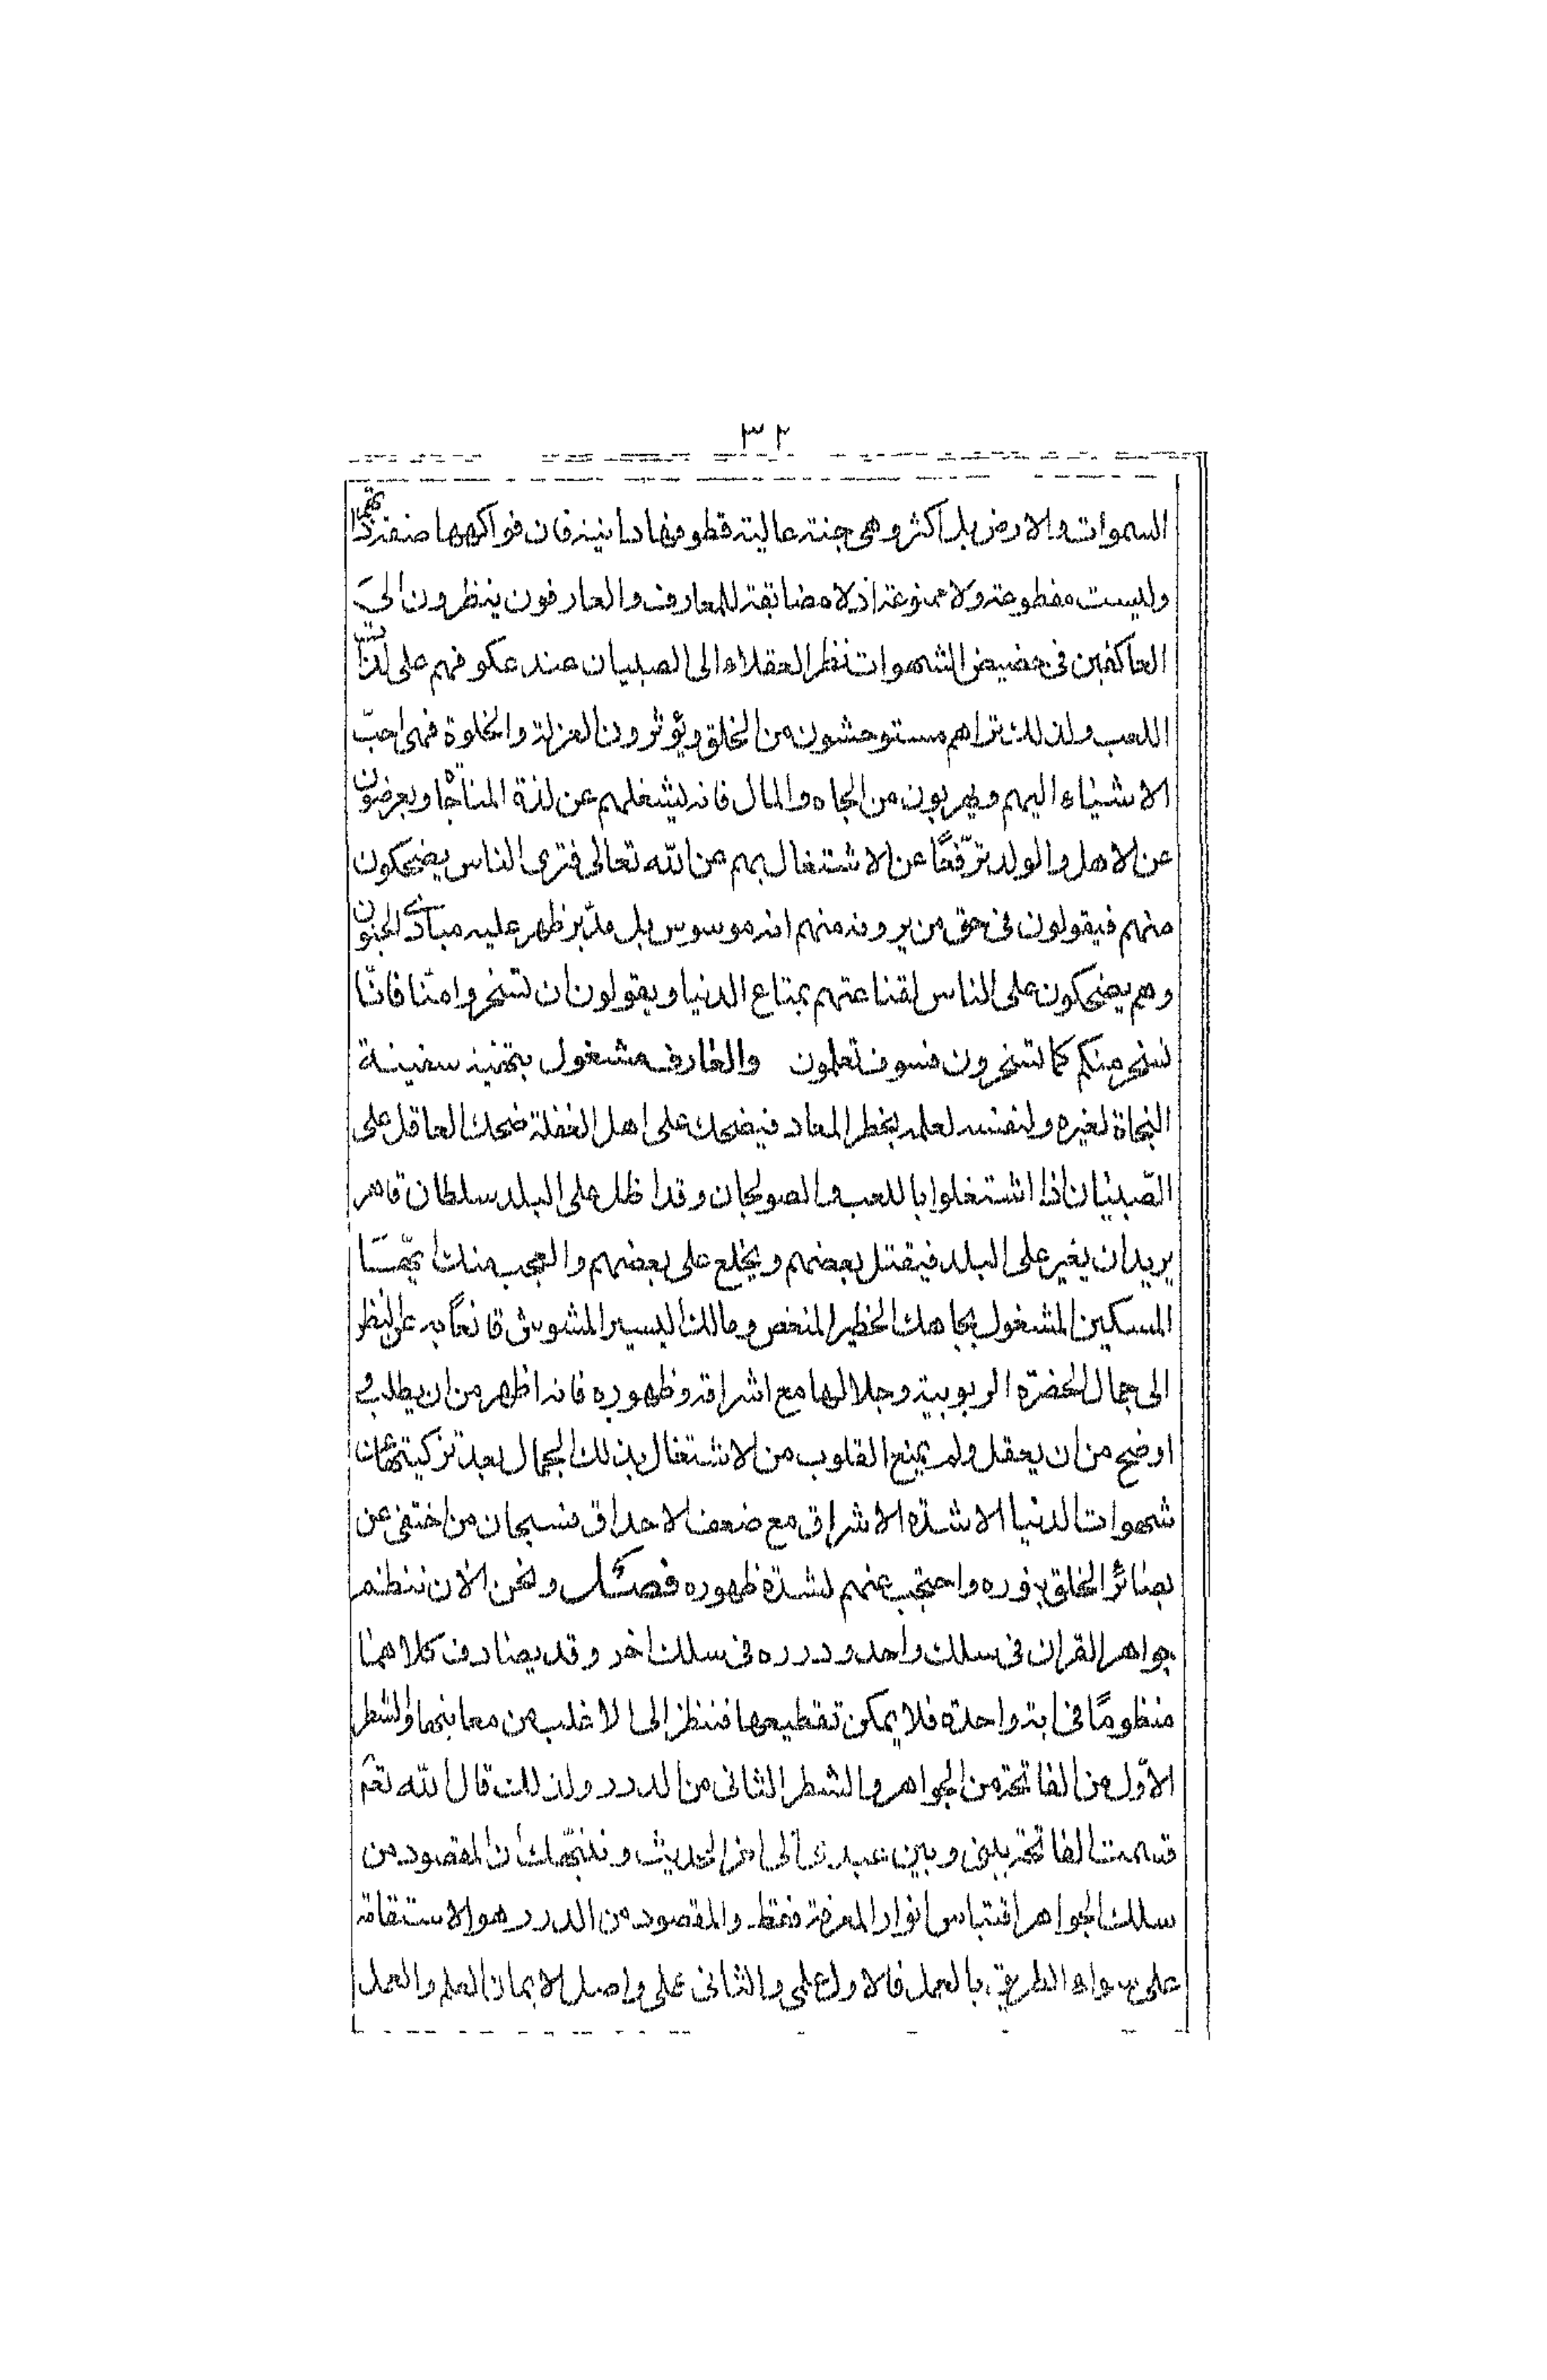 ٣٢
السموات والارض بل اكثر وهى جنة عالية قطوفها دانية فان فواكهها صفة ذاتهم
وليست مقطوعة ولا ممنوعة اذ لا مضايقة للمعارف والعارفون ينظرون الى
العاكفين فى حضيض الشهوات نظر العقلاء الى الصبيان عند عكوفهم على لذات
اللعب ولذلك تراهم مستوحشون من الخلق ويؤثرون العزلة والخلوة فهى احبّ
الاشياء اليهم ويهربون من الجاه والمال فانه يشغلهم عن لذة المناجاة ويعرضون
عن الاهل والولد ترفّعًا عن الاشتغال بهم عن الله تعالى فترى الناس يضحكون
منهم فيقولون فى حق من يرونه منهم انه موسوس بل مدبر ظهر عليه مبادى الجنون
وهم يضحكون على الناس لقناعتهم بمتاع الدنيا ويقولون ان تسخروا منّا فانّا
نسخر منكم كما تسخرون فسوف تعلمون والعارف مشغول بتهيئة سفينة
النجاة لغيره ولنفسه لعلمه بخطر المعاد فيضحك على اهل الغفلة ضحك العاقل على
الصّبيان اذا اشتغلوا باللعب والصولجان وقد اظل على البلد سلطان قاهر
يريد ان يغير على البلد فيقتل بعضهم ويخلع على بعضهم والعجب منك ايّها
المسكين المشغول بجاهك الخطير المنغص ومالك اليسير المشوش قانعًا به عن النظر
الى جمال الحضرة الربوبية وجلالها مع اشراقه وظهوره فانه اظهر من ان يطلب و
اوضح من ان يعقل ولم يمنع القلوب من الاشتغال بذلك الجمال بعد تزكيتها عن
شهوات الدنيا الا شدة الاشراق مع ضعف الاحداق فسبحان من اختفى عن
بصائر الخلق بنوره واحتجب عنهم لشدة ظهوره فصل ونحن الان ننظم
جواهر القران فى سلك واحد ودرره فى سلك اخر وقد يصادف كلاهما
منظومًا فى اية واحدة فلا يمكن تقطيعها فننظر الى الاغلب من معانيها والشطر
الاوّل من الفاتحة من الجواهر والشطر الثانى من الدرر ولذلك قال الله تعم
قسمت الفاتحة بينى وبين عبدى الى اخر الحديث وننبّهك ان المقصود من
سلك الجواهر اقتباس انوار المعرفة فقط والمقصود من الدرر هو الاستقامة
على سواء الطريق بالعمل فالاول علمى والثانى عملى واصل الايمان العلم والعمل